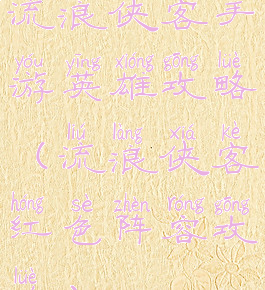 流浪侠客手
yóu yīng xióng gōng lüè
游英雄攻略
liú làng xiá kè
(流浪侠客
hóng sè zhèn róng gōng
红色阵容攻
lüè